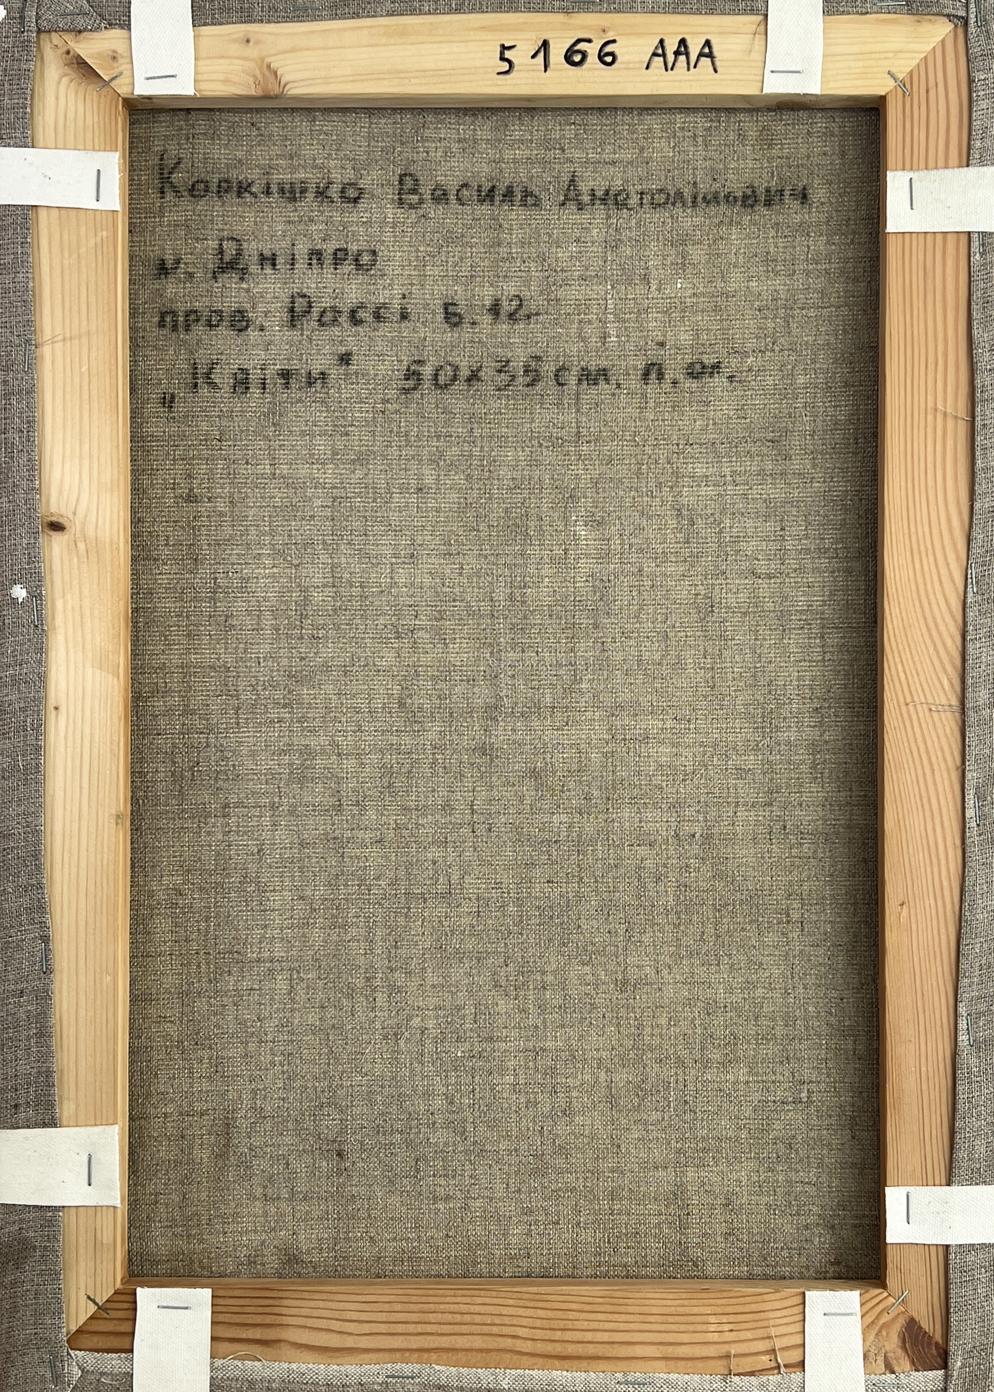 5166 AAA
Коркішко Василь Анатолійович
м. Дніпро
пров. Рассі б. 12.
„Квіти" 50х35 см. п. ол.